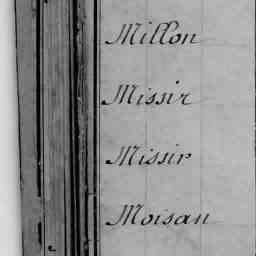 Millon
Missir
Missir
Moisan